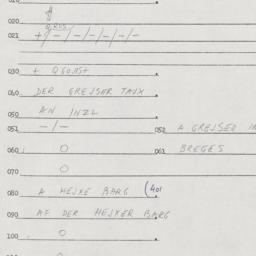 020
021 +/-/-/-/-/-/-
030 + QGONST
040 DER GREJSER TAUX
050 AN INZL
051 -/-
052 A GREJSER
060 O
061 BREGES
070 O
080 A HEJXE BARG (401
090 AF DER HEJXER BARG
100 O